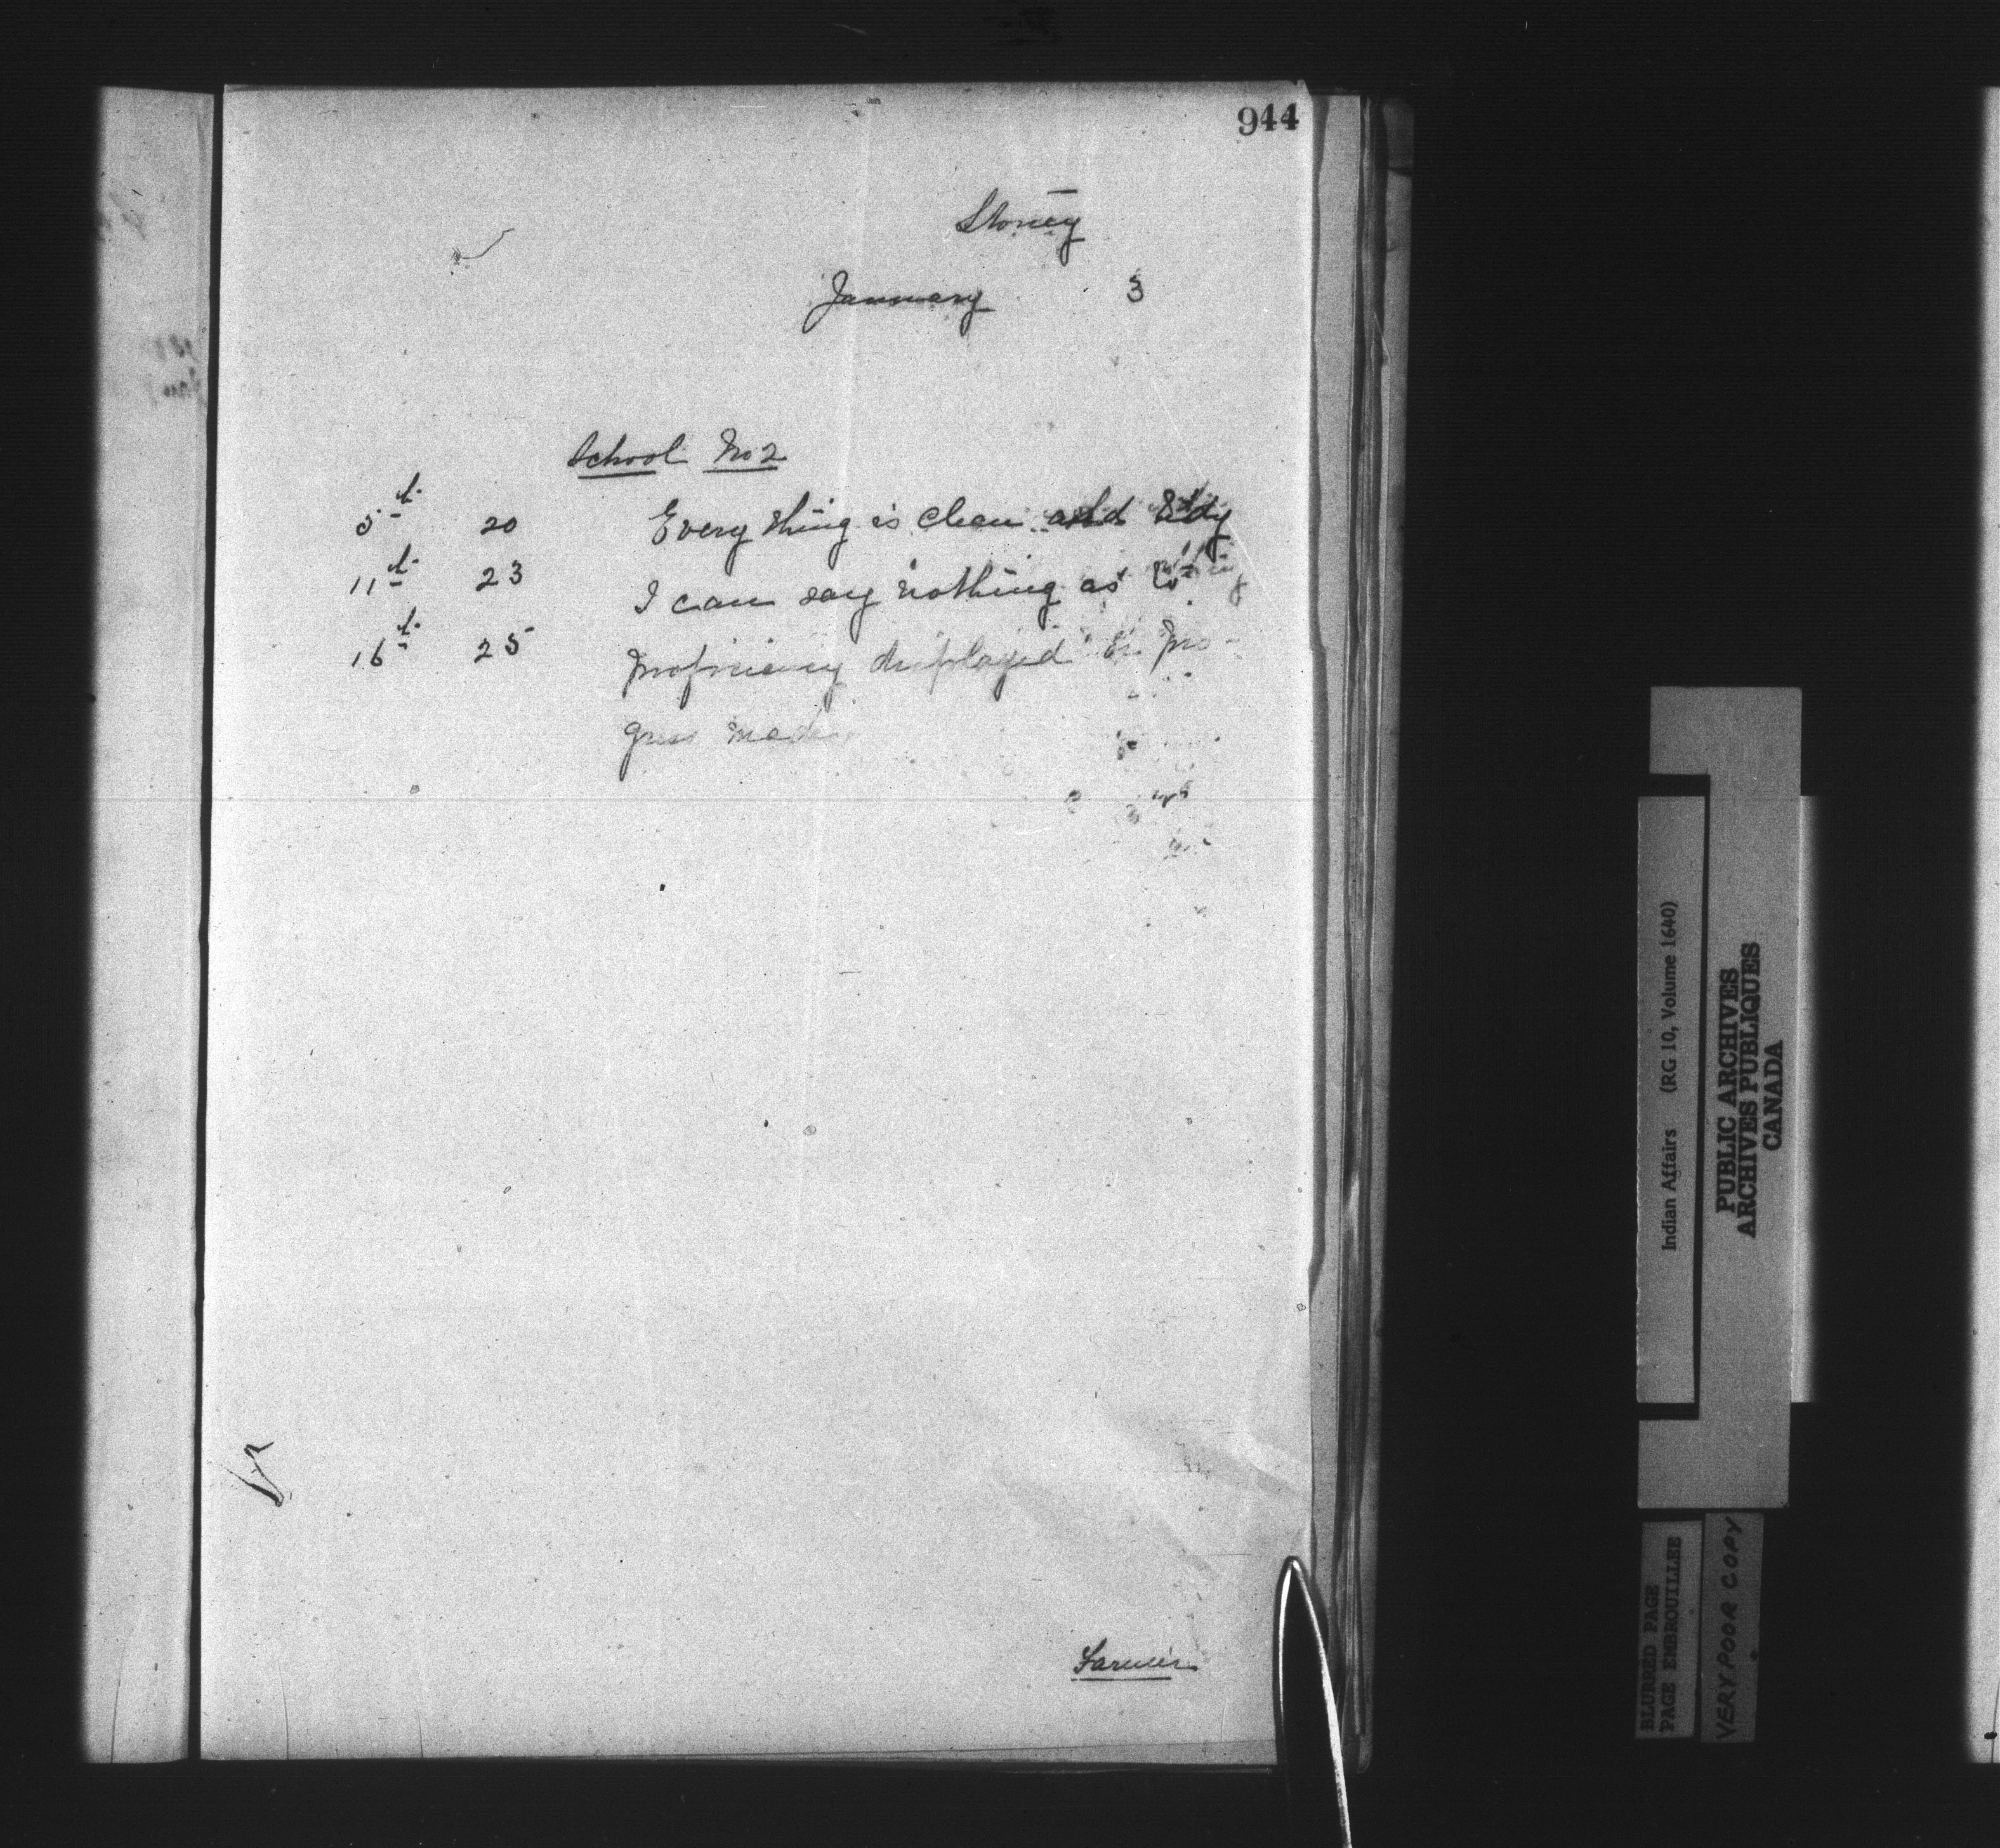 944
Stoney
January 3
School No 2
5th 20 Every thing is clean and tidy
11th 23 I can say nothing as to
16th 25 proficiency displayed or pro-
gress made.
Farmer
Indian Affairs (RG 10, Volume 1640)
PUBLIC ARCHIVES
ARCHIVES PUBLIQUES
CANADA
BLURRED PAGE
PAGE EMBROUILLEE
VERY POOR COPY